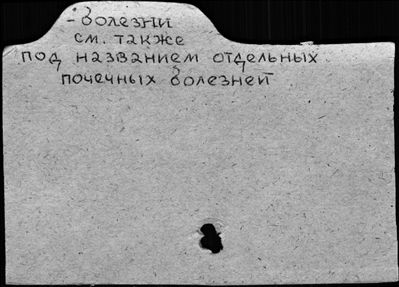 - болезни
см. также
под названием отдельных
почечных болезней